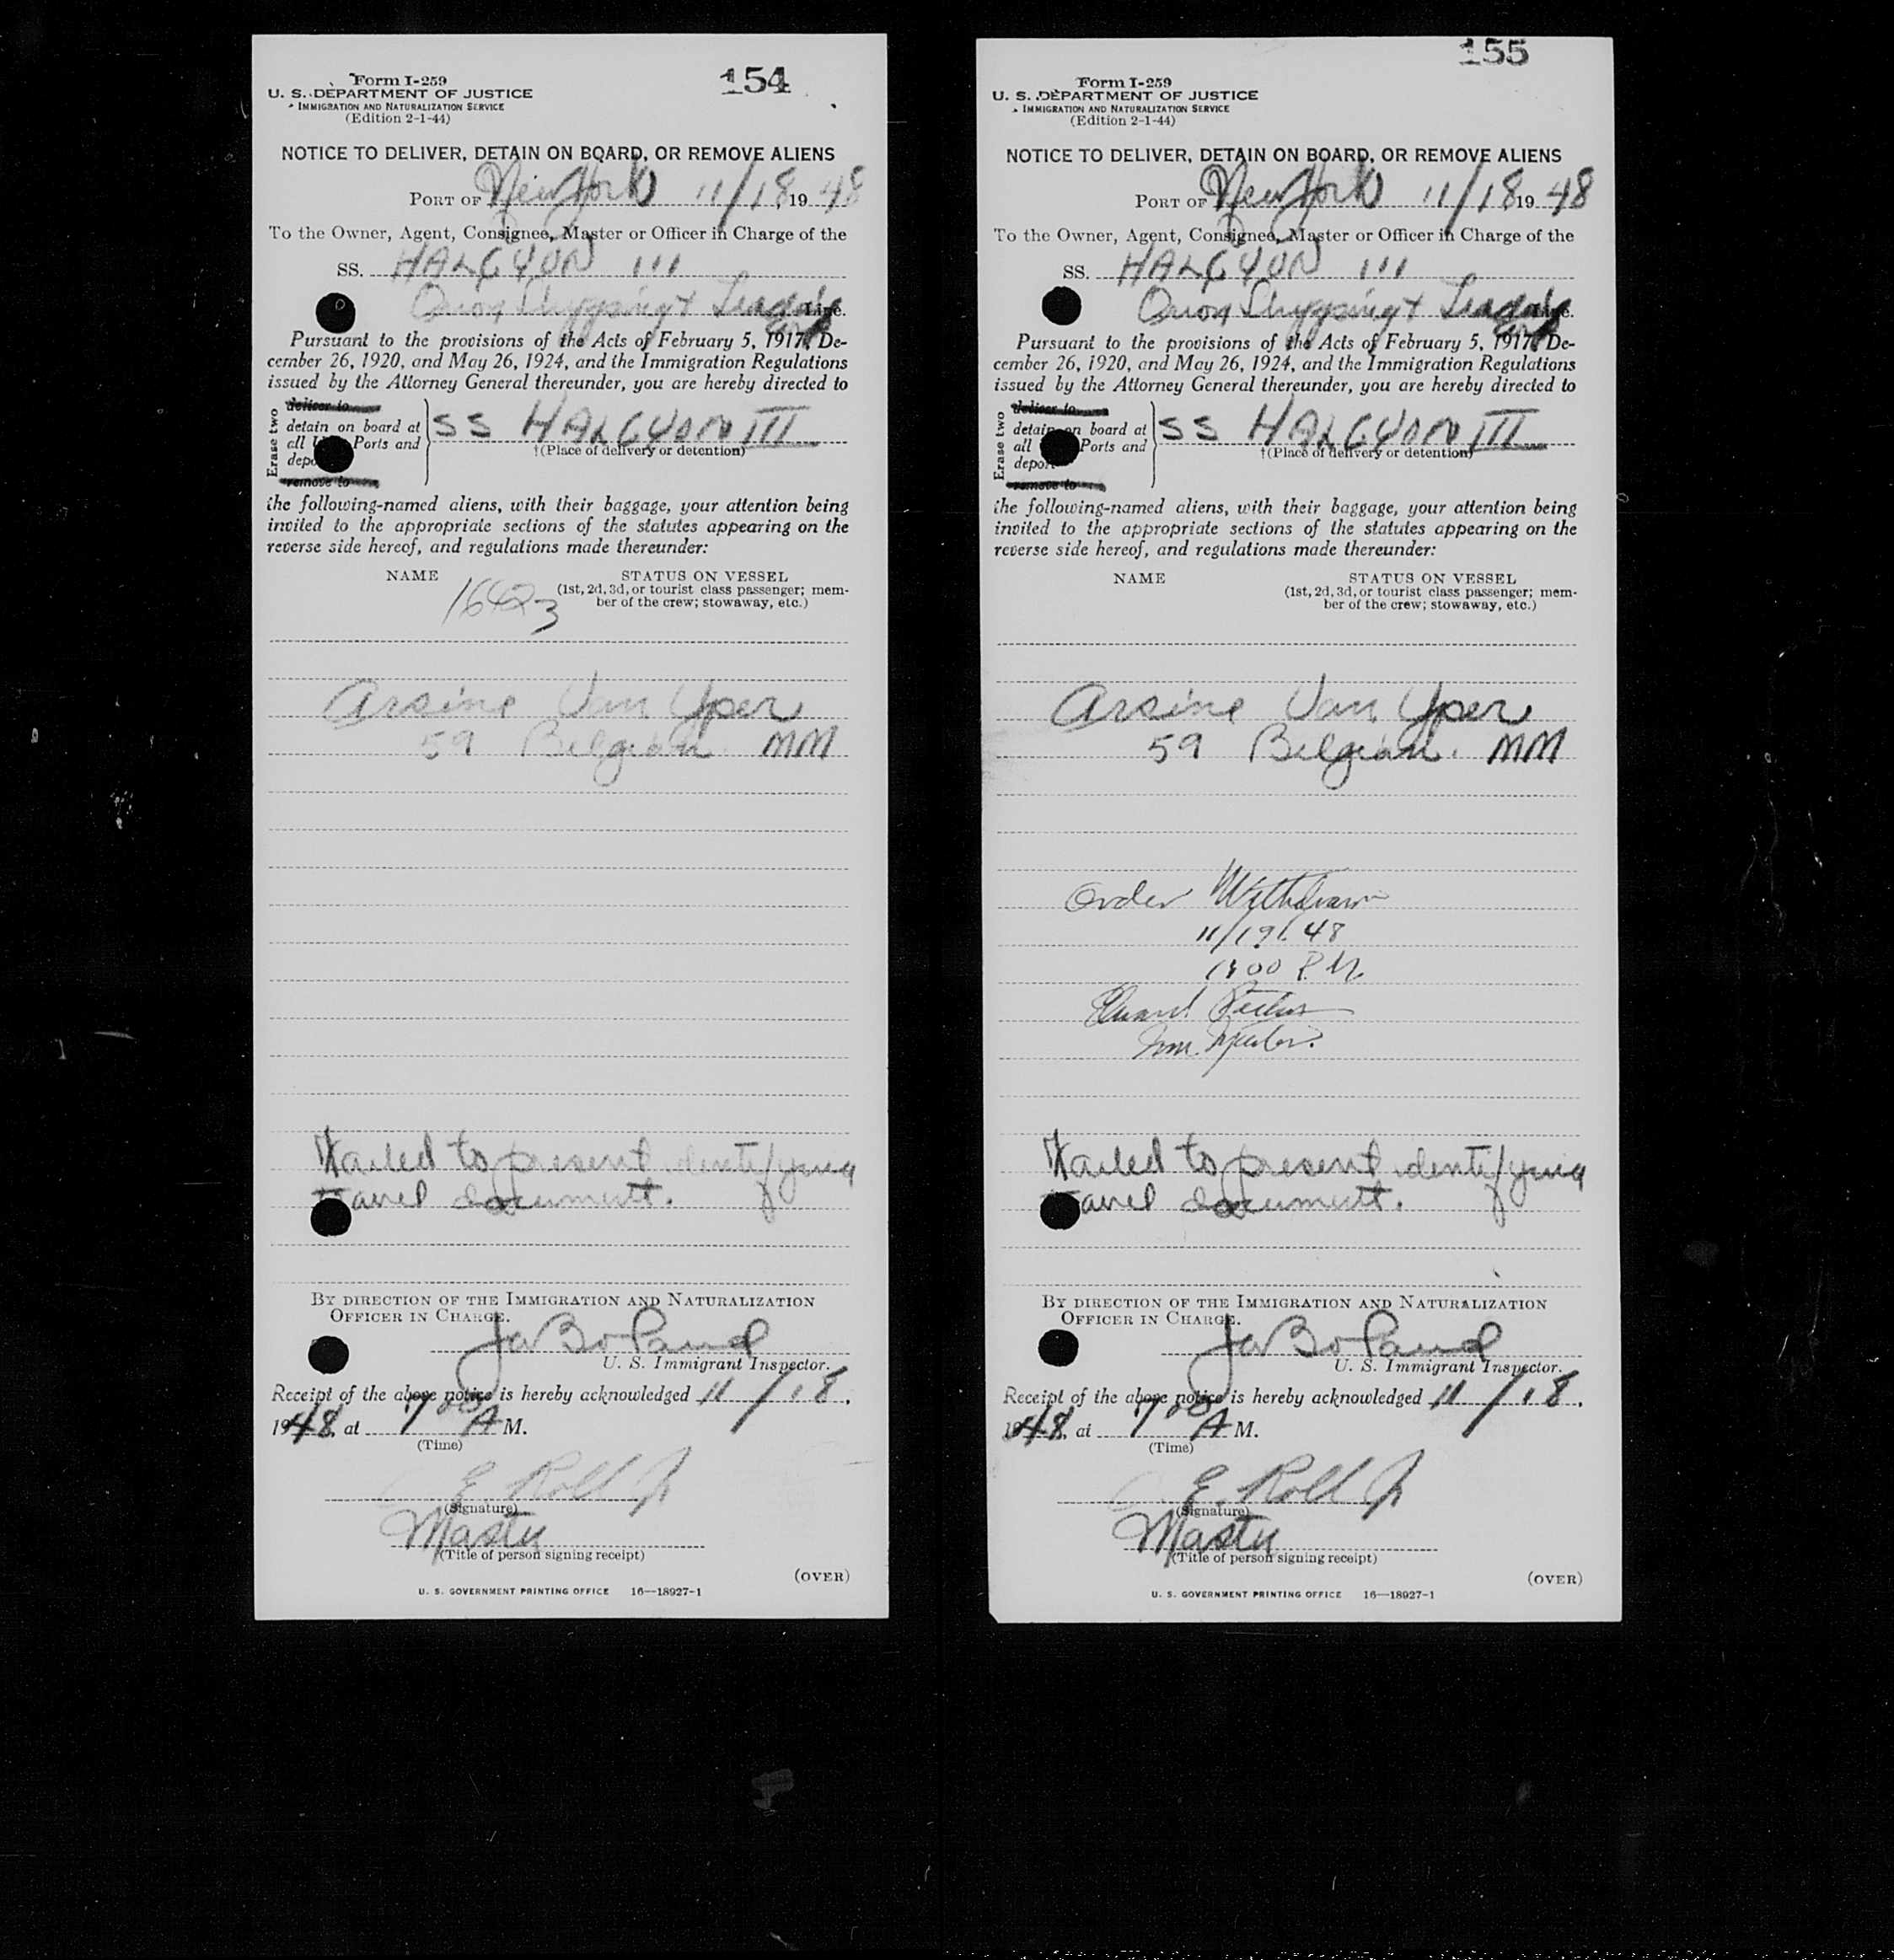 154
Form I-259
U. S. DEPARTMENT OF JUSTICE
IMMIGRATION AND NATURALIZATION SERVICE
(Edition 2-1-44)
NOTICE TO DELIVER, DETAIN ON BOARD, OR REMOVE ALIENS
PORT OF New York 11/18, 19 48
To the Owner, Agent, Consignee, Master or Officer in Charge of the
SS. HALCYON III
Shipping & Line.
Pursuant to the provisions of the Acts of February 5, 1917, De-
cember 26, 1920, and May 26, 1924, and the Immigration Regulations
issued by the Attorney General thereunder, you are hereby directed to
Erase two
deliver to
detain on board at
all Ports and
remove to
SS HALCYON III
†(Place of delivery or detention)
the following-named aliens, with their baggage, your attention being
invited to the appropriate sections of the statutes appearing on the
reverse side hereof, and regulations made thereunder:
NAME
STATUS ON VESSEL
(1st, 2d, 3d, or tourist class passenger; mem-
ber of the crew; stowaway, etc.)
Arsine Van Yper
59 Belgian MM
Failed to present identifying
travel document.
BY DIRECTION OF THE IMMIGRATION AND NATURALIZATION
OFFICER IN CHARGE.
U. S. Immigrant Inspector.
Receipt of the above notice is hereby acknowledged 11/18,
1948, at 7 00 A M.
(Time)
E. Roll Jr
(Signature)
Master
(Title of person signing receipt)
(OVER)
U. S. GOVERNMENT PRINTING OFFICE 16—18927-1
155
Form I-259
U. S. DEPARTMENT OF JUSTICE
IMMIGRATION AND NATURALIZATION SERVICE
(Edition 2-1-44)
NOTICE TO DELIVER, DETAIN ON BOARD, OR REMOVE ALIENS
PORT OF New York 11/18 19 48
To the Owner, Agent, Consignee, Master or Officer in Charge of the
SS. HALCYON III
Shipping & Line.
Pursuant to the provisions of the Acts of February 5, 1917, De-
cember 26, 1920, and May 26, 1924, and the Immigration Regulations
issued by the Attorney General thereunder, you are hereby directed to
Erase two
deliver to
detain on board at
all Ports and
remove to
SS HALCYON III
†(Place of delivery or detention)
the following-named aliens, with their baggage, your attention being
invited to the appropriate sections of the statutes appearing on the
reverse side hereof, and regulations made thereunder:
NAME
STATUS ON VESSEL
(1st, 2d, 3d, or tourist class passenger; mem-
ber of the crew; stowaway, etc.)
Arsine Van Yper
59 Belgian. MM
Order Withdrawn
11/19/48
P.M.
Failed to present identifying
travel document.
BY DIRECTION OF THE IMMIGRATION AND NATURALIZATION
OFFICER IN CHARGE.
U. S. Immigrant Inspector.
Receipt of the above notice is hereby acknowledged 11/18,
1948, at 7 00 A M.
(Time)
E. Roll Jr
(Signature)
Master
(Title of person signing receipt)
(OVER)
U. S. GOVERNMENT PRINTING OFFICE 16—18927-1